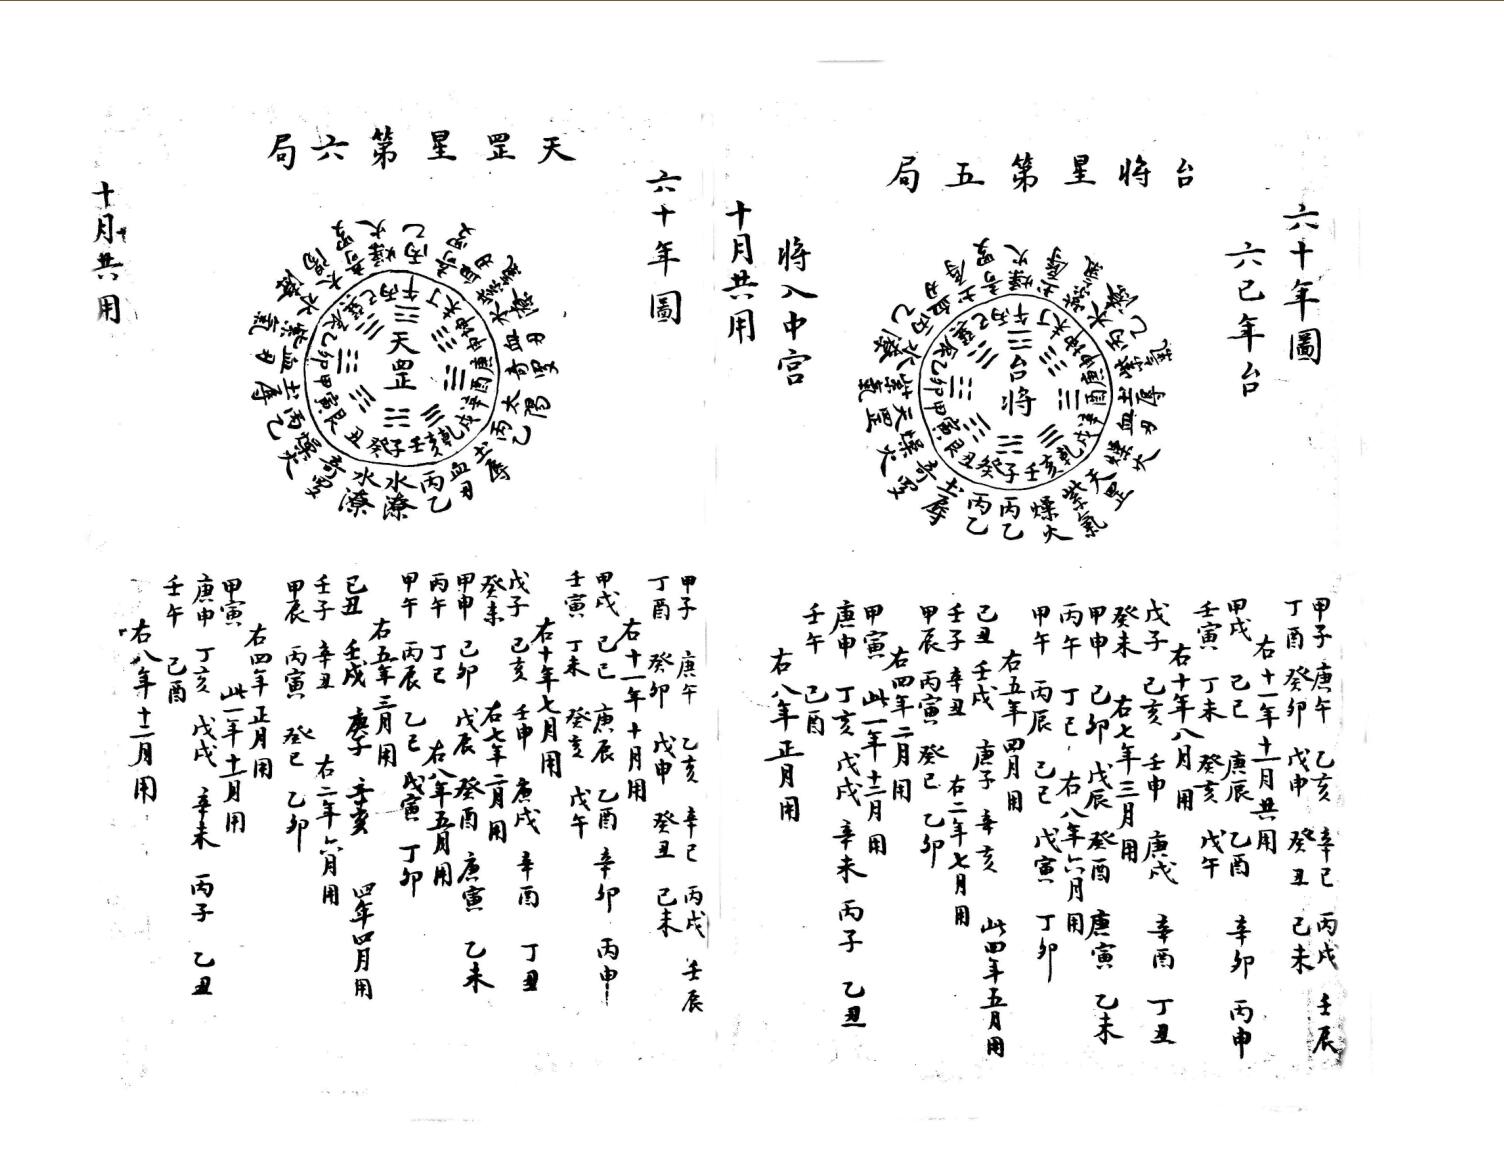 台將星第五局
六十年圖
六己年台
將入中宮
十月共用
台將
午丙
未丁
坤申
庚酉
辛戌
乾亥
壬子
癸丑
艮寅
甲卯
乙辰
巽巳
甲子 庚午 乙亥 辛巳 丙戌 壬辰
丁酉 癸卯 戊申 癸丑 己未
右十一年十一月共用
甲戌 己巳 庚辰 乙酉 辛卯 丙申
壬寅 丁未 癸亥 戊午
右十年八月用
戊子 己亥 壬申 庚戌 辛酉 丁丑
癸未 右七年三月用
甲申 己卯 戊辰 癸酉 庚寅 乙未
丙午 丁巳 右八年六月用
甲午 丙辰 己巳 戊寅 丁卯
右五年四月用
己丑 壬戌 庚子 辛亥 此四年五月用
壬子 辛丑 右二年七月用
甲辰 丙寅 癸巳 乙卯
右四年二月用
甲寅 此一年十二月用
庚申 丁亥 戊戌 辛未 丙子 乙丑
壬午 己酉
右八年正月用
天罡星第六局
六十年圖
十月共用
天罡
午丙
未丁
坤申
庚酉
辛戌
乾亥
壬子
癸丑
艮寅
甲卯
乙辰
巽巳
甲子 庚午 乙亥 辛巳 丙戌 壬辰
丁酉 癸卯 戊申 癸丑 己未
右十一年十月用
甲戌 己巳 庚辰 乙酉 辛卯 丙申
壬寅 丁未 癸亥 戊午
右十年七月用
戊子 己亥 壬申 庚戌 辛酉 丁丑
癸未 右七年二月用
甲申 己卯 戊辰 癸酉 庚寅 乙未
丙午 丁巳 右八年五月用
甲午 丙辰 乙巳 戊寅 丁卯
右五年三月用
己丑 壬戌 庚子 辛亥 四年四月用
壬子 辛丑 右二年六月用
甲辰 丙寅 癸巳 乙卯
右四年正月用
甲寅 此一年十一月用
庚申 丁亥 戊戌 辛未 丙子 乙丑
壬午 己酉
右八年十二月用